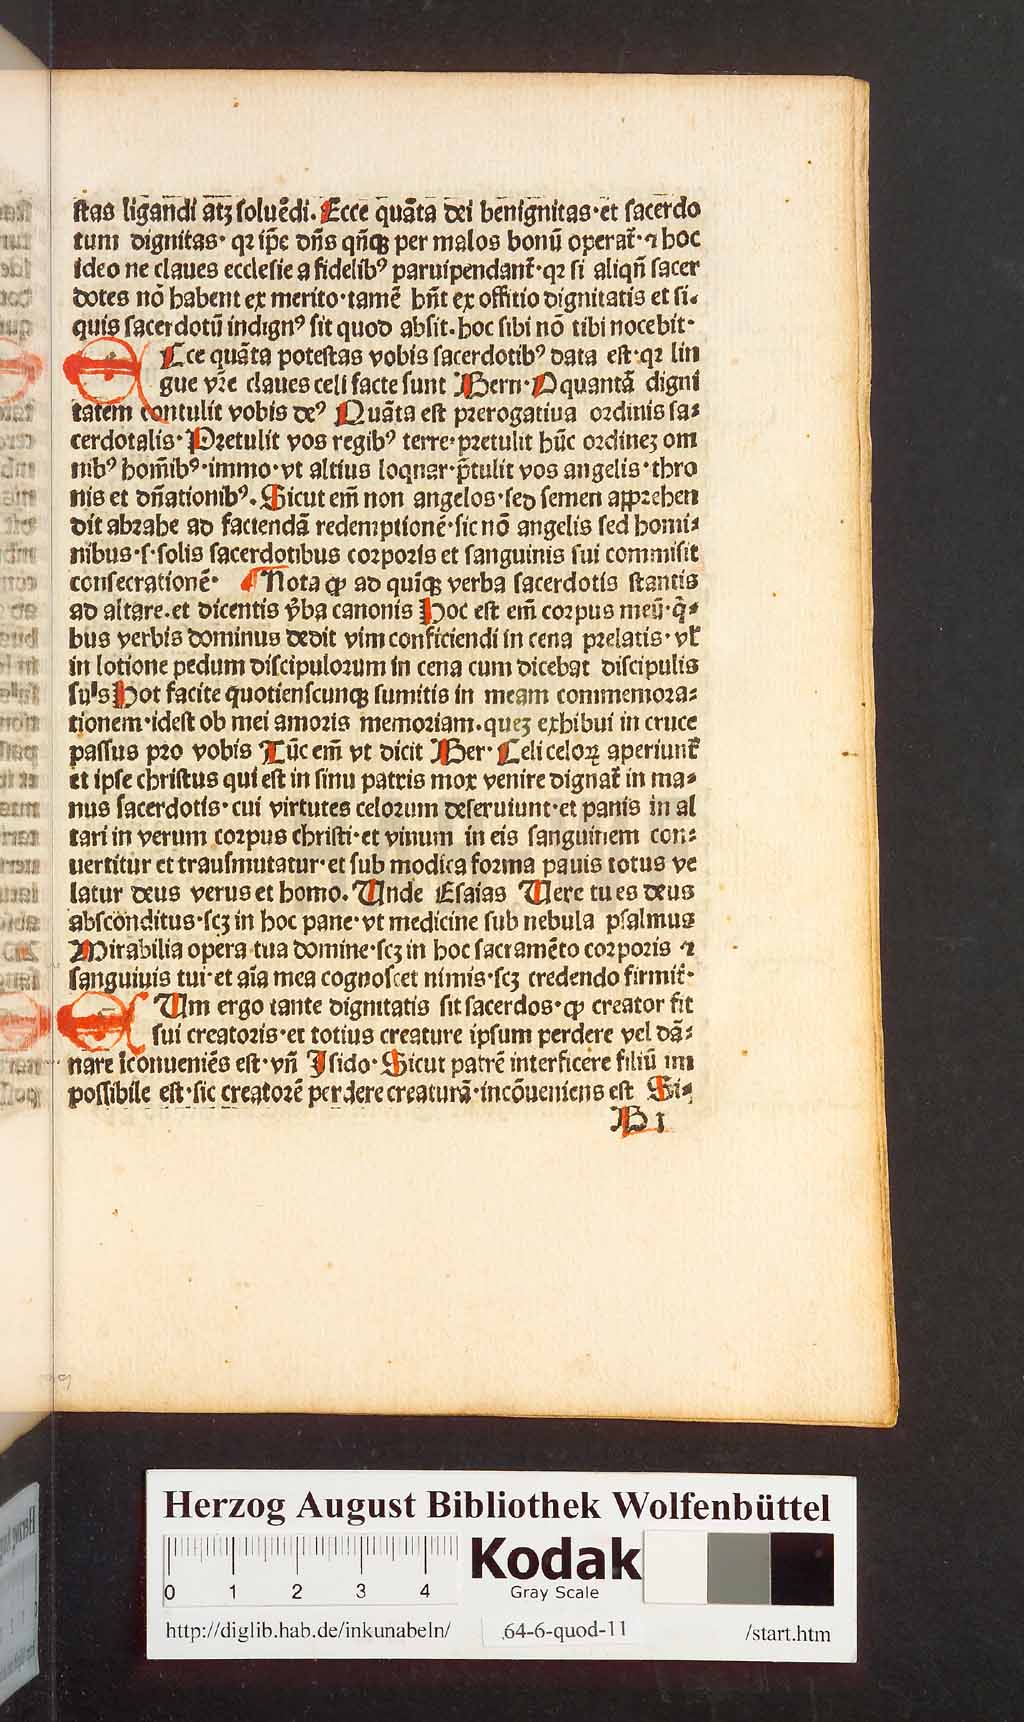 ſtas ligandi atqꝫ ſoluēdi. Ecce quāta dei benignitas·et ſacerdo
tum dignitas· qꝛ ip̄e dn̄s qn̄qꝫ per malos bonū operat᷑·⁊ hoc
ideo ne claues eccleſie a fidelibꝰ paruipendant᷑·qꝛ ſi aliqn̄ ſacer
dotes nō habent ex merito·tamē hn̄t ex offitio dignitatis et ſi.
quis ſacerdotū indignꝰ ſit quod abſit. hoc ſibi nō tibi nocebit·
Ecce quāta poteſtas vobis ſacerdotibꝰ data eſt·qꝛ lin
gue vr̄e claues celi facte ſunt Bern·O quantā digni
tatem contulit vobis deꝰ Quāta eſt prerogatiua ordinis ſa⸗
cerdotalis·Pretulit vos regibꝰ terre·pretulit hūc ordinez om
nibꝰ hom̄ibꝰ·immo·vt altius loqnar·p̄tulit vos angelis·thro
nis et dn̄ationibꝰ. Sicut em̄ non angelos·ſed ſemen apprehen
dit abrahe ad faciendā redemptionē·ſic nō angelis ſed homi⸗
nibus·ſ·ſolis ſacerdotibus corporis et ſanguinis ſui commiſit
conſecrationē· Nota ꝙ ad quīqꝫ verba ſacerdotis ſtantis
ad altare.et dicentis v̓ba canonis Hoc eſt em̄ corpus meū·qͥ⸗
bus verbis dominus dedit vim conficiendi in cena prelatis·vl̓
in lotione pedum diſcipulorum in cena cum dicebat diſcipulis
ſuis Hot facite quotienſcunqꝫ ſumitis in meam commemora⸗
tionem·ideſt ob mei amoris memoriam.quez exhibui in cruce
paſſus pro vobis Tūc em̄ vt dicit Ber· Celi celoꝝ aperiunt᷑
et ipſe chriſtus qui eſt in ſinu patris mox venire dignat᷑ in ma⸗
nus ſacerdotis·cui virtutes celorum deſeruiunt·et panis in al
tari in verum corpus chriſti·et vinum in eis ſanguinem con⸗
uertitur et trauſmutatur·et ſub modica forma pauis totus ve
latur deus verus et homo. Unde Eſaias Uere tu es deus
abſconditus·ſcꝫ in hoc pane·vt medicine ſub nebula pſalmus
Mirabilia opera tua domine·ſcꝫ in hoc ſacramēto corporis ⁊
ſanguiuis tui·et aīa mea cognoſcet nimis·ſcꝫ credendo firmit᷑·
Um ergo tante dignitatis ſit ſacerdos·ꝙ creator ſit
ſui creatoris·et totius creature ipſum perdere vel dā⸗
nare īconueniēs eſt·vn̄ Iſido·Sicut patrē interficere filiū im
poſſibile eſt·ſic creatorē perdere creaturā·incōueniens eſt Si⸗
B i
Herzog August Bibliothek Wolfenbüttel
0 1 2 3 4
Kodak
Gray Scale
http://diglib.hab.de/inkunabeln/ 64-6-quod-11 /start.htm